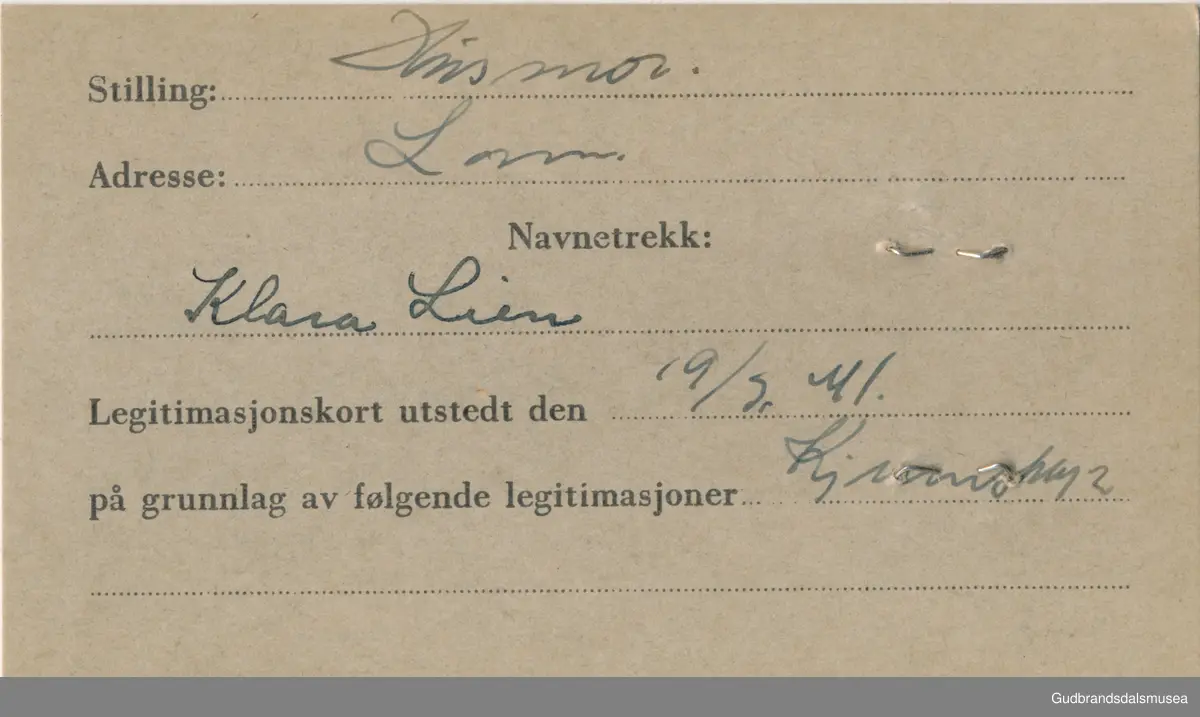 Stilling: Husmor.
Adresse: Lom.
Navnetrekk:
Klara Lien
Legitimasjonskort utstedt den 19/9. 41.
på grunnlag av følgende legitimasjoner
Gudbrandsdalsmusea